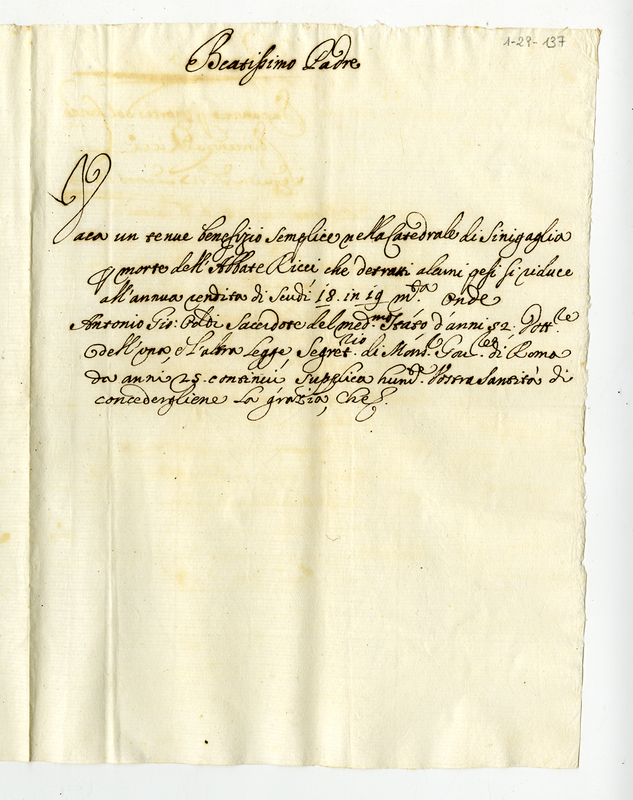 1-29-137
Beatissimo Padre
Vaca un tenue benefizio semplice nella Catedrale di Sinigaglia
p morte dell'Abbate Ricci che detratti alcuni pesi si riduce
all'annua rendita di Scudi 18. in 19 m.ta Onde
Antonio Gio: Sacerdote del med.mo Stato d'anni 52. Dott.re
dell'una, e l'altra Legge, Segret.rio di Mons.r Gov.re di Roma
da anni 25. continui, supplica hum.te Vostra Santità di
concedergliene la grazia, Che &.